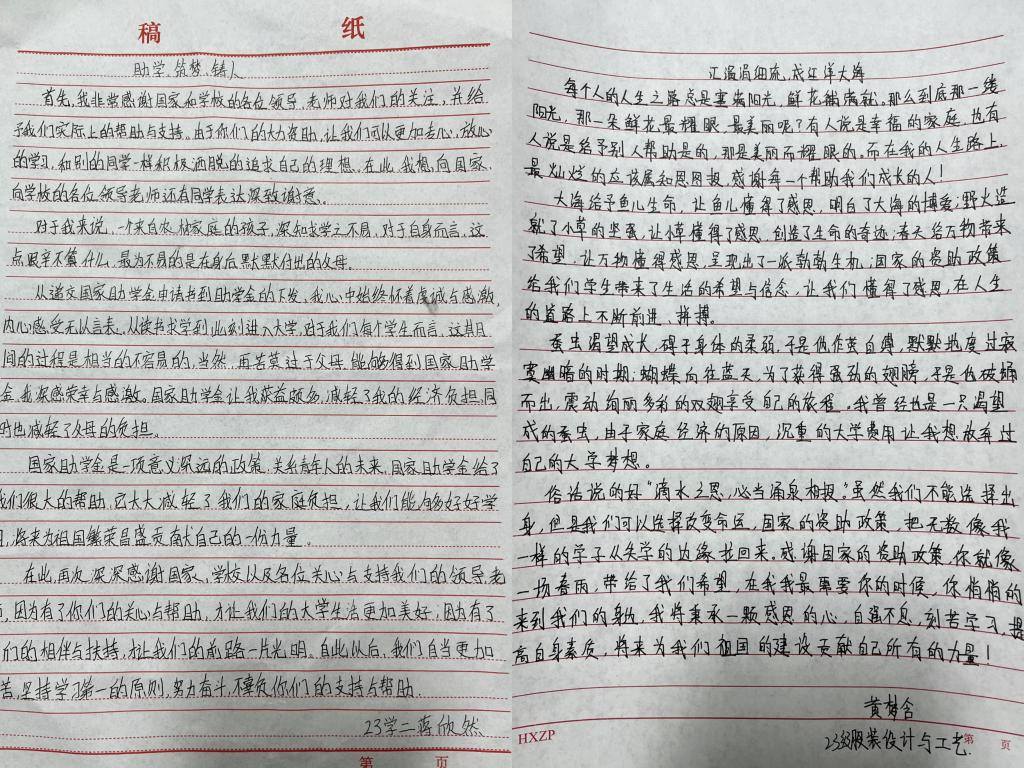 稿 纸
助学、筑梦、铸人
首先,我非常感谢国家和学校的各位领导、老师对我们的关注,并给
予我们实际上的帮助与支持。由于你们的大力资助,让我们可以更加专心,放心
的学习,和别的同学一样积极洒脱的追求自己的理想。在此,我想向国家,
向学校的各位领导老师还有同学表达深致谢意。
对于我来说,一个来自农村家庭的孩子,深知求学之不易,对于自身而言,这
点艰辛不算什么,最为不易的是在身后默默付出的父母。
从递交国家助学金申请书到助学金的下发,我心中始终怀着虔诚与感激,
内心感受无以言表。从读书求学到此刻进入大学,对于我们每个学生而言,这其日
间的过程是相当的不容易的,当然,再苦莫过于父母,能够得到国家助学
金,我深感荣幸与感激。国家助学金让我获益颇多,减轻了我的经济负担,同
时也减轻了父母的负担。
国家助学金是一项意义深远的政策,关系青年人的未来,国家助学金给了
我们很大的帮助,它大大减轻了我们的家庭负担,让我们能够好好学
习,将来为祖国繁荣昌盛贡献自己的一份力量。
在此,再次深深感谢国家、学校以及各位关心与支持我们的领导,老
,因为有了你们的关心与帮助,才让我们的大学生活更加美好,因为有了
们的相伴与扶持,才让我们的前路一片光明。自此以后,我们自当更加
苦,坚持学习第一的原则,努力奋斗,不辜负你们的支持与帮助.
23学二蒋欣然
第 页
汇涓涓细流,成汪洋大海
每个人的人生之路总是塞满阳光,鲜花铺满就。那么到底那一缕
阳光,那一朵鲜花最耀眼,最美丽呢?有人说是幸福的家庭,也有
人说是给予别人帮助是的,那是美丽而耀眼的。而在我的人生路上,
最灿烂的应该属知恩图报,感谢每一个帮助我们成长的人!
大海给予鱼儿生命,让鱼儿懂得了感恩,明白了大海的博爱;野火造
就了小草的坚强,让小草懂得了感恩,创造了生命的奇迹;春天给万物带来
了希望,让万物懂得感恩,呈现出了一派勃勃生机;国家的资助政策
给我们学生带来了生活的希望与信念,让我们懂得了感恩,在人生
的道路上不断前进、拼搏。
蚕虫渴望成长,碍于身体的柔弱,于是他作茧自缚,默默地度过寂
寞幽暗的时期;蝴蝶向往蓝天,为了获得强劲的翅膀,于是他破蛹
而出,震动绚丽多彩的双翅享受自己的旅程。我曾经也是一只渴望
成的蚕虫,由于家庭经济的原因,沉重的大学费用让我想放弃过
自己的大学梦想。
俗话说的好“滴水之恩,必当涌泉相报”。虽然我们不能选择出
身,但是我们可以选择改变命运,国家的资助政策,把无数像我
一样的学子从失学的边缘找回来。感谢国家的资助政策,你就像
一场春雨,带给了我们希望,在我我最重要你的时候,你悄悄的
来到我们的身边,我将秉承一颗感恩的心,自强不息,刻苦学习,提
高自身素质,将来为我们祖国的建设贡献自己所有的力量!
黄梦含
23级服装设计与工艺
HXZP
第 页